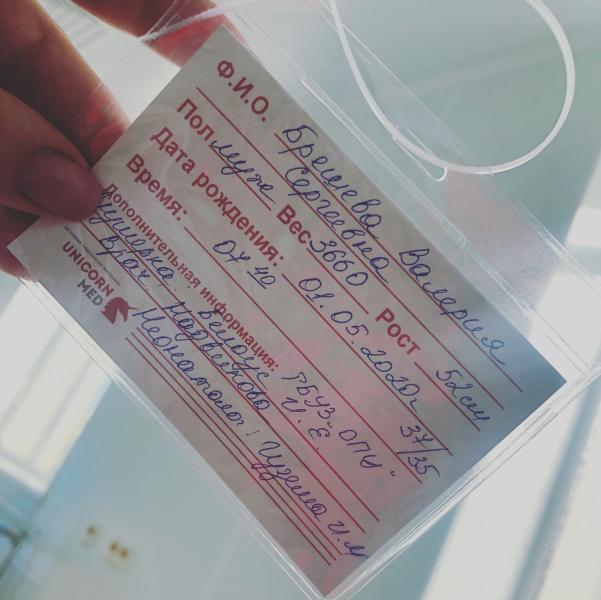 Ф.И.О. Брешева Валерия
Сергеевна
Пол муж Вес 3660 Рост 52см
Дата рождения: 01.05.2020г 37/35
Время: 07 40
Дополнительная информация: ГБУЗ "ОПЦ"
Акушерка: Белоус И.Е.
Врач
Неонатолог: И.И
UNICORN
MED